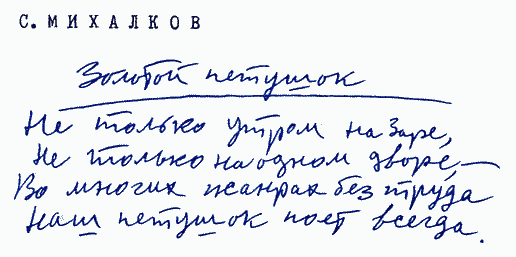 С. МИХАЛКОВ
Золотой петушок
Не только утром на заре,
Не только на одном дворе, —
Во многих жанрах без труда
Наш петушок поет всегда.